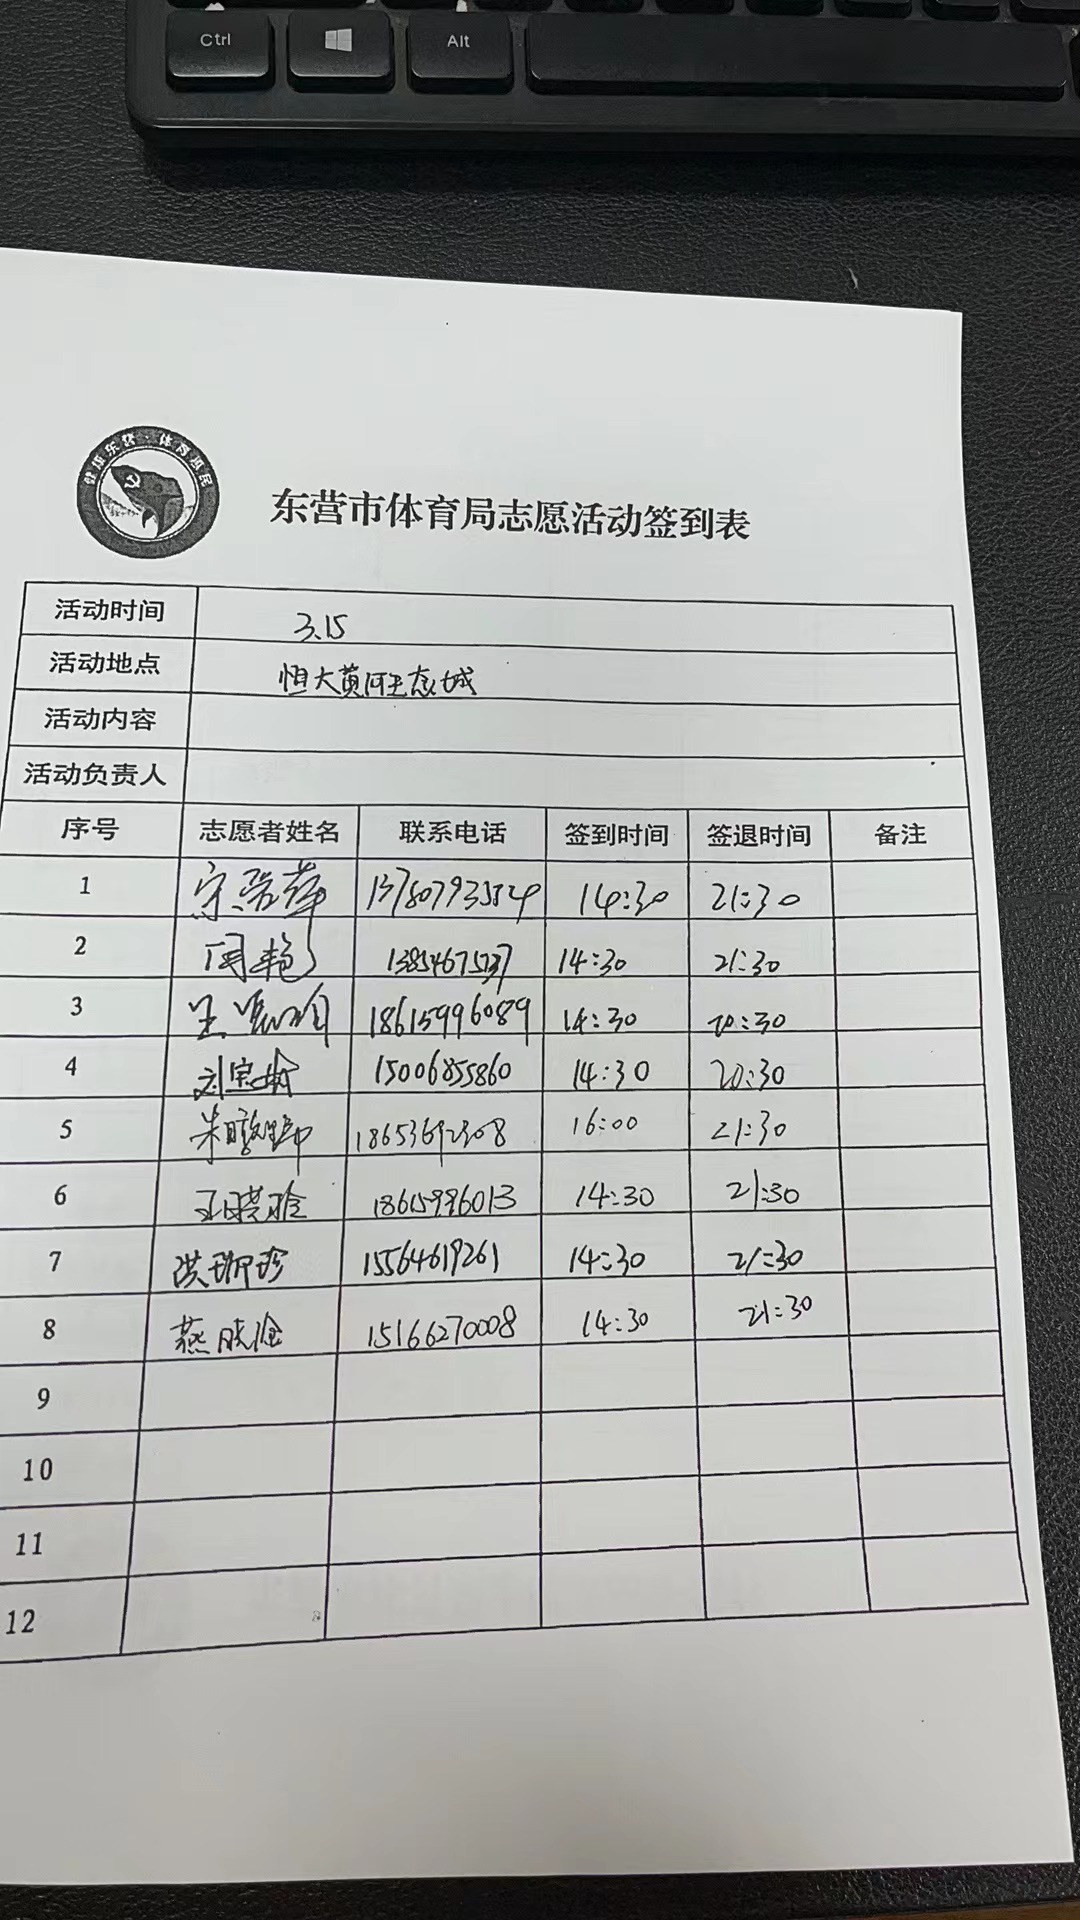 Ctrl
Alt
健康东营·体育惠民
东营市体育局志愿活动签到表
活动时间 3.15
活动地点 恒大黄河生态城
活动内容
活动负责人
序号 志愿者姓名 联系电话 签到时间 签退时间 备注
1 14:30 21:30
2 闫艳 14:30 21:30
3 18615996089 14:30 20:30
4 15006855860 14:30 20:30
5 16:00 21:30
6 王晓玲 18615996013 14:30 21:30
7 洪珊珍 15564619261 14:30 21:30
8 燕 15166270008 14:30 21:30
9
10
11
12